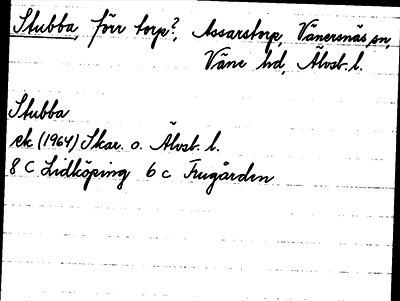 Stubba, förr torp?, Assarstorp, Vänersnäs sn,
Väne hd, Älvsb. l.
Stubba
ek (1964) Skar. o. Älvsb. l.
8 C Lidköping 6 c Frugården